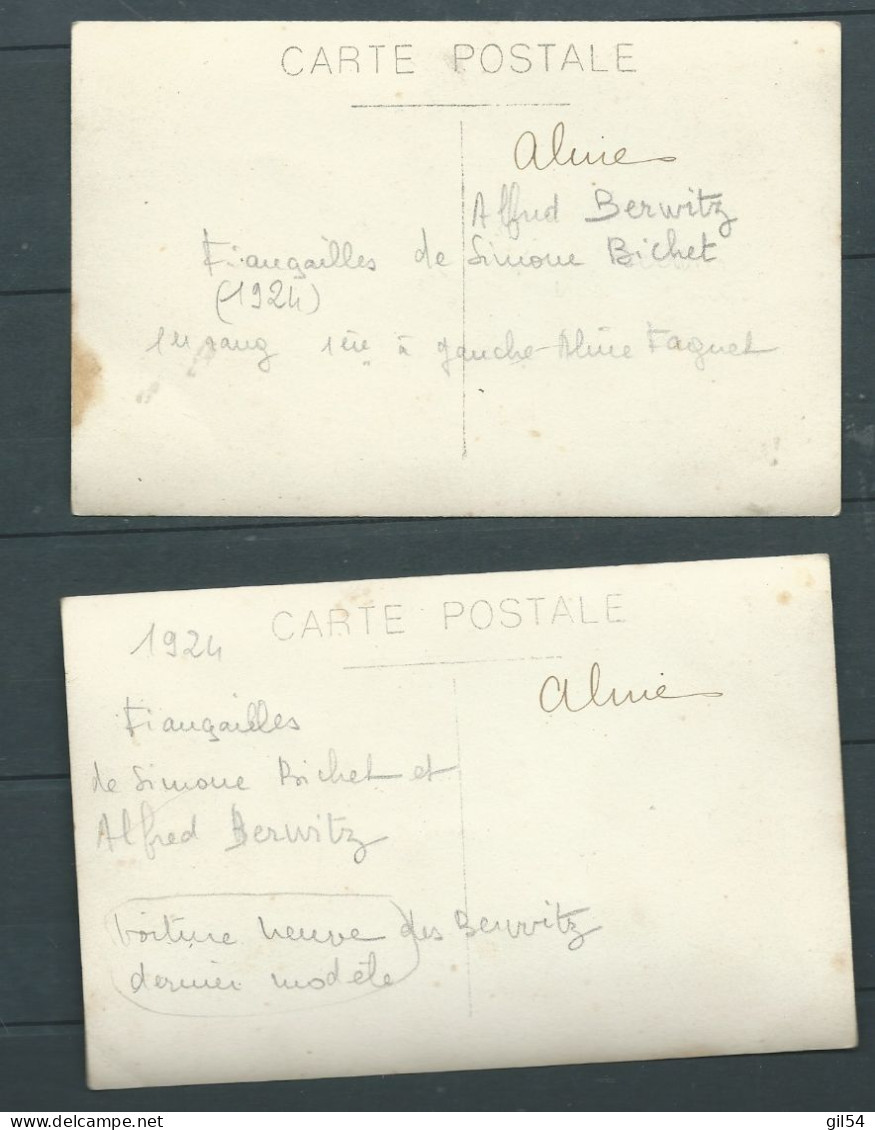 CARTE POSTALE
Aline
Alfred Berwitz
Fiançailles de Simone Bichet
(1924)
1er rang 1ère à gauche - Aline Faguet
CARTE POSTALE
1924
Aline
Fiançailles
de Simone Bichet et
Alfred Berwitz
Voiture neuve des Berwitz
dernier modèle
gil54